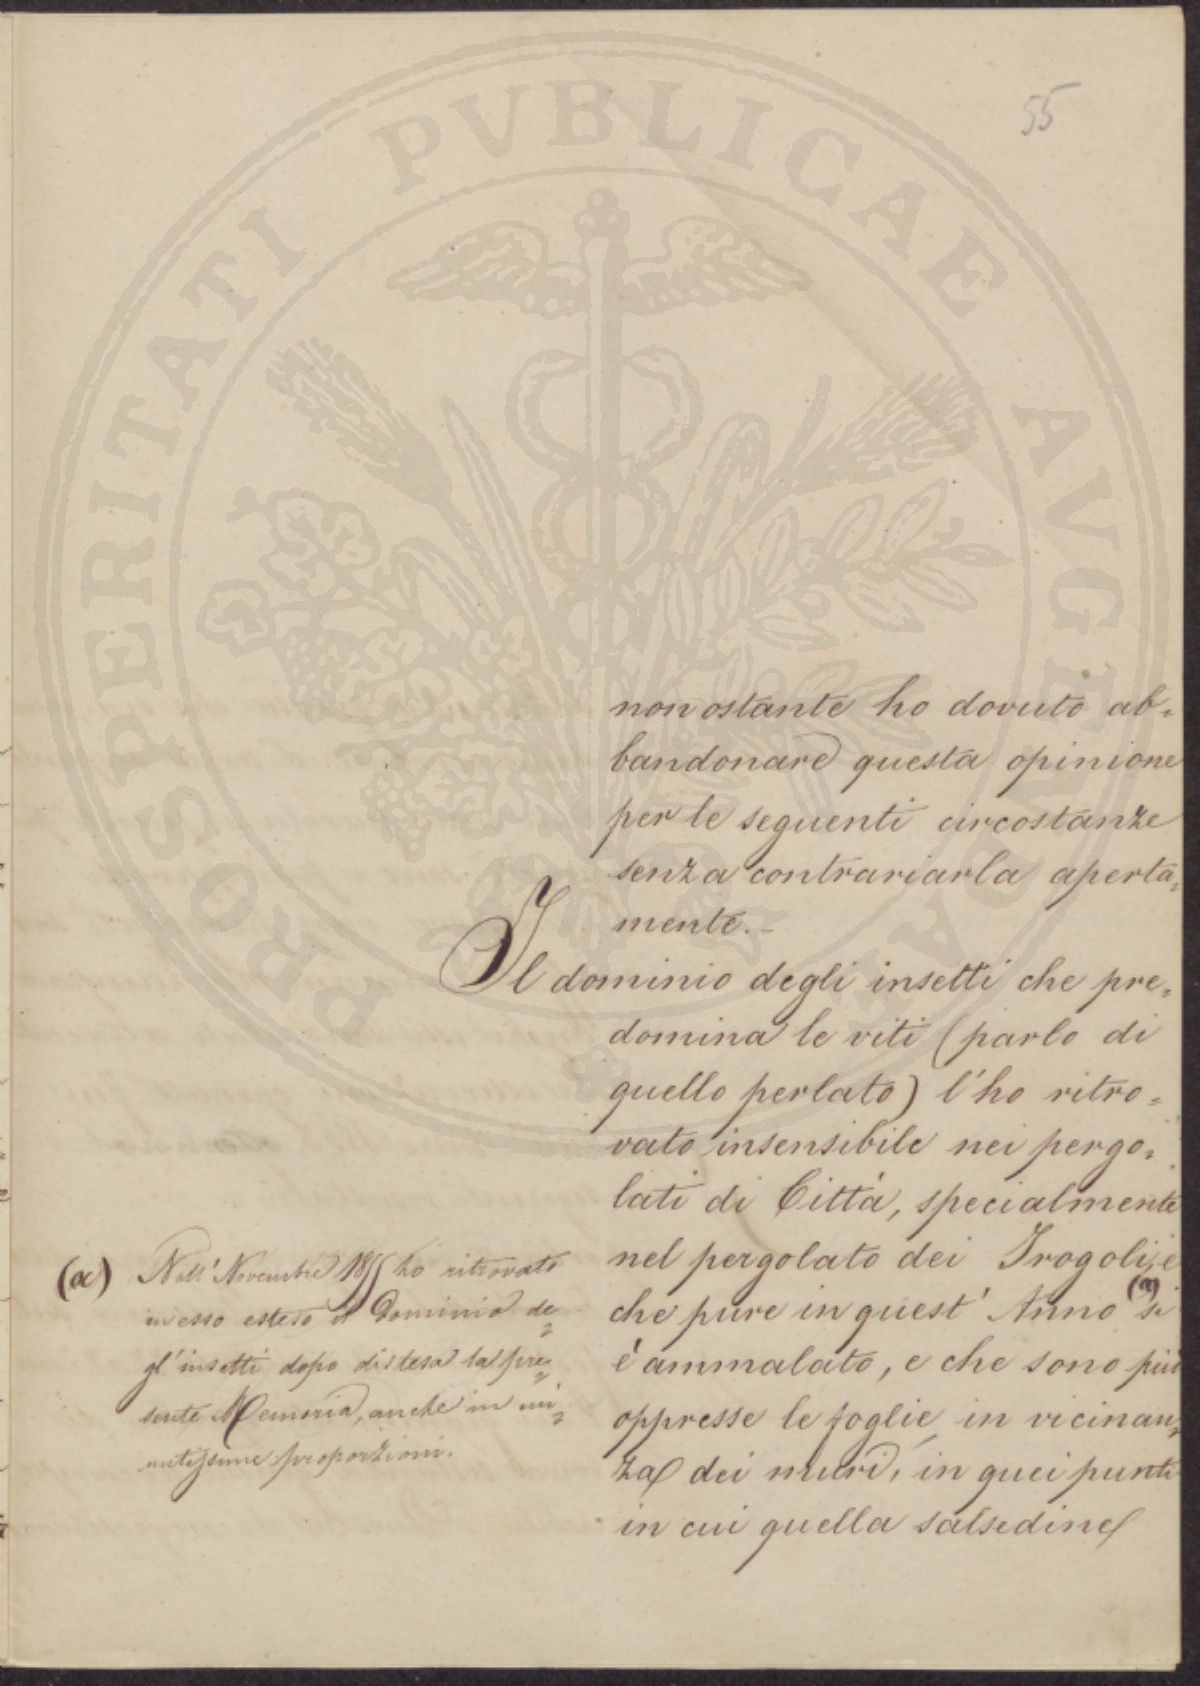 55
PROSPERITATI PUBLICAE AUGENDAE
non ostante ho dovuto ab=
bandonare questa opinione
per le seguenti circostanze
senza contrariarla aperta=
mente.-
Il dominio degli insetti che pre=
domina le viti (parlo di
quello perlato) l'ho ritro=
vato insensibile nei pergo=
lati di Città, specialmente
nel pergolato dei Trogoli, e
che pure in quest' Anno (a) si
è ammalato, e che sono più
oppresse le foglie in vicinan=
za dei muri, in quei punti
in cui quella salsedine
(a) Nell' Novembre 1855 ho ritrovato
in esso esteso il Dominio de=
gl' insetti dopo distesa la pre=
sente Memoria, anche in mi=
nutissime proporzioni.